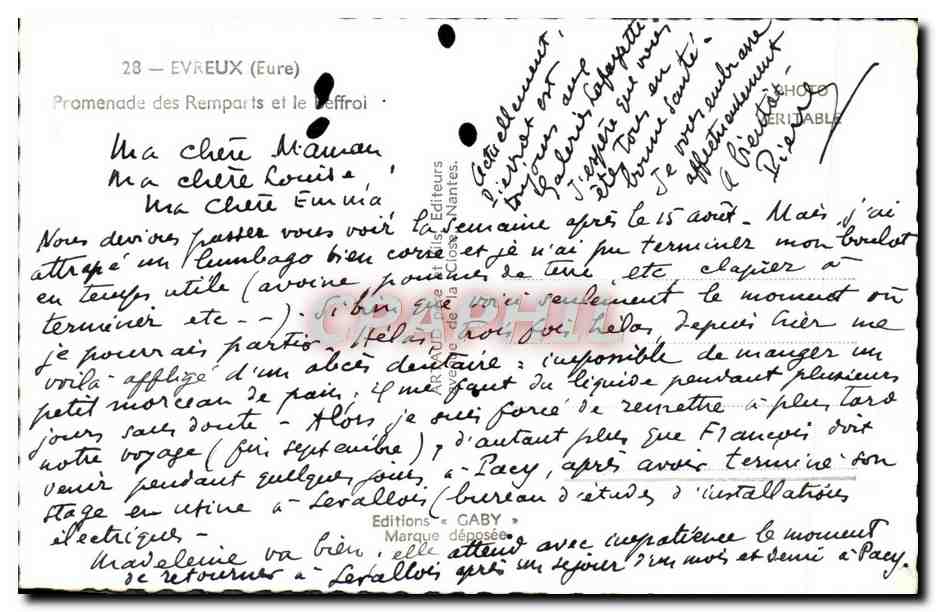 28 — EVREUX (Eure)
Promenade des Remparts et le Beffroi
PHOTO
VERITABLE
Ma chère Maman
Ma chère Louise,
Ma chère Emma!
Nous devions passer vous voir la semaine après le 15 août - Mais j'ai
attrapé un lumbago bien corsé et je n'ai pu terminer mon boulot
en temps utile (avoine pommes de terre etc clapier à
terminer etc - -). Si bien que voici seulement le moment où
je pourrais partir. Hélas trois fois hélas, depuis hier me
voilà affligé d'un abcès dentaire : impossible de manger un
petit morceau de pain; il me faut du liquide pendant plusieurs
jours sans doute - Alors je suis forcé de remettre à plus tard
notre voyage (fin septembre), d'autant plus que François doit
venir pendant quelques jours à Pacy, après avoir terminé son
stage en usine à Levallois (bureau d'études d'installations
électriques -
Madeleine va bien, elle attend avec impatience le moment
de retourner à Levallois après un séjour d'un mois et demi à Pacy.
Actuellement,
Pierrot est
toujours aux
Galeries Lafayette.
J'espère que vous
êtes tous en
bonne santé.
Je vous embrasse
affectueusement
A bientôt.
Pierre
ARNAUD père et fils, Editeurs
avenue de la Close, Nantes.
CPAPHIL
Editions « GABY »
Marque déposée